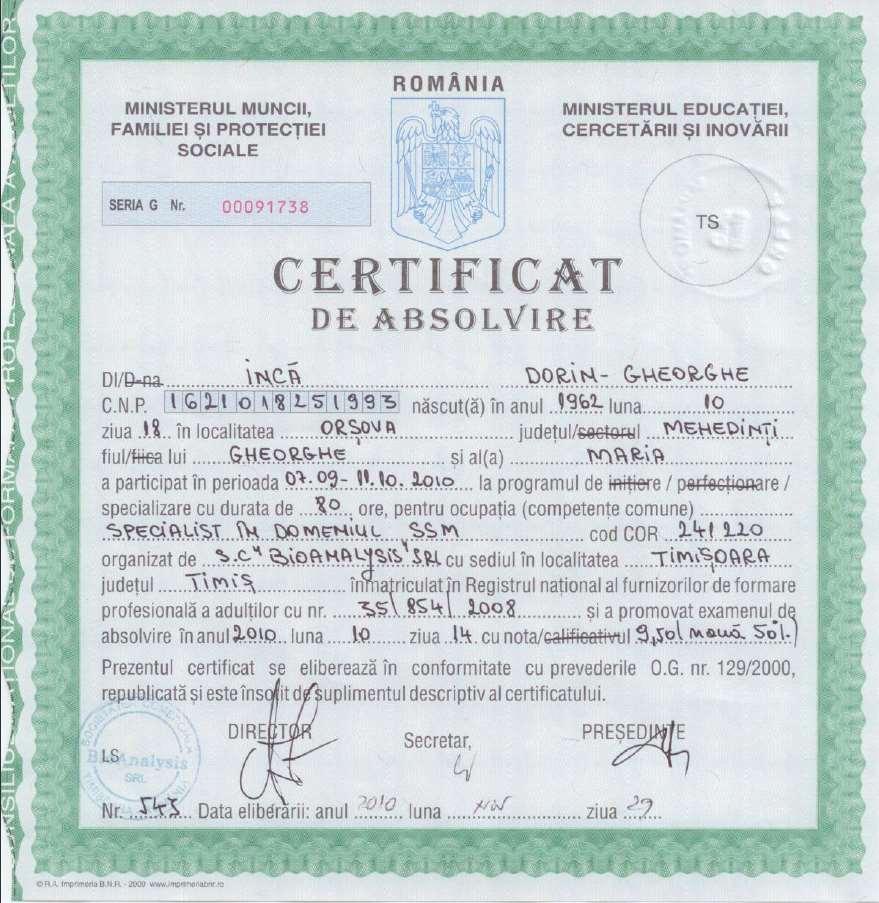 ROMÂNIA
MINISTERUL MUNCII,
FAMILIEI ȘI PROTECȚIEI
SOCIALE
MINISTERUL EDUCAȚIEI,
CERCETĂRII ȘI INOVĂRII
SERIA G Nr. 00091738
TS
CERTIFICAT
DE ABSOLVIRE
Dl/D-na INCĂ DORIN-GHEORGHE
C.N.P. 1621018251993 născut(ă) în anul 1962 luna 10
ziua 18 în localitatea ORȘOVA județul/sectorul MEHEDINȚI
fiul/fiica lui GHEORGHE și al(a) MARIA
a participat în perioada 07.09-11.10.2010 la programul de inițiere / perfecționare /
specializare cu durata de 80 ore, pentru ocupația (competențe comune)
SPECIALIST ÎN DOMENIUL SSM cod COR 241220
organizat de S.C "BIOANALYSIS" SRL cu sediul în localitatea TIMIȘOARA
județul TIMIȘ înmatriculat în Registrul național al furnizorilor de formare
profesională a adulților cu nr. 35/854/2008 și a promovat examenul de
absolvire în anul 2010 luna 10 ziua 14 cu nota/calificativul 9,50 (nouă 50%)
Prezentul certificat se eliberează în conformitate cu prevederile O.G. nr. 129/2000,
republicată și este însoțit de suplimentul descriptiv al certificatului.
DIRECTOR
Secretar,
PREȘEDINTE
LS
BioAnalysis
SRL
Nr. 543 Data eliberării: anul 2010 luna ziua 29
© R.A. Imprimeria B.N.R. - 2009 www.imprimeriabnr.ro